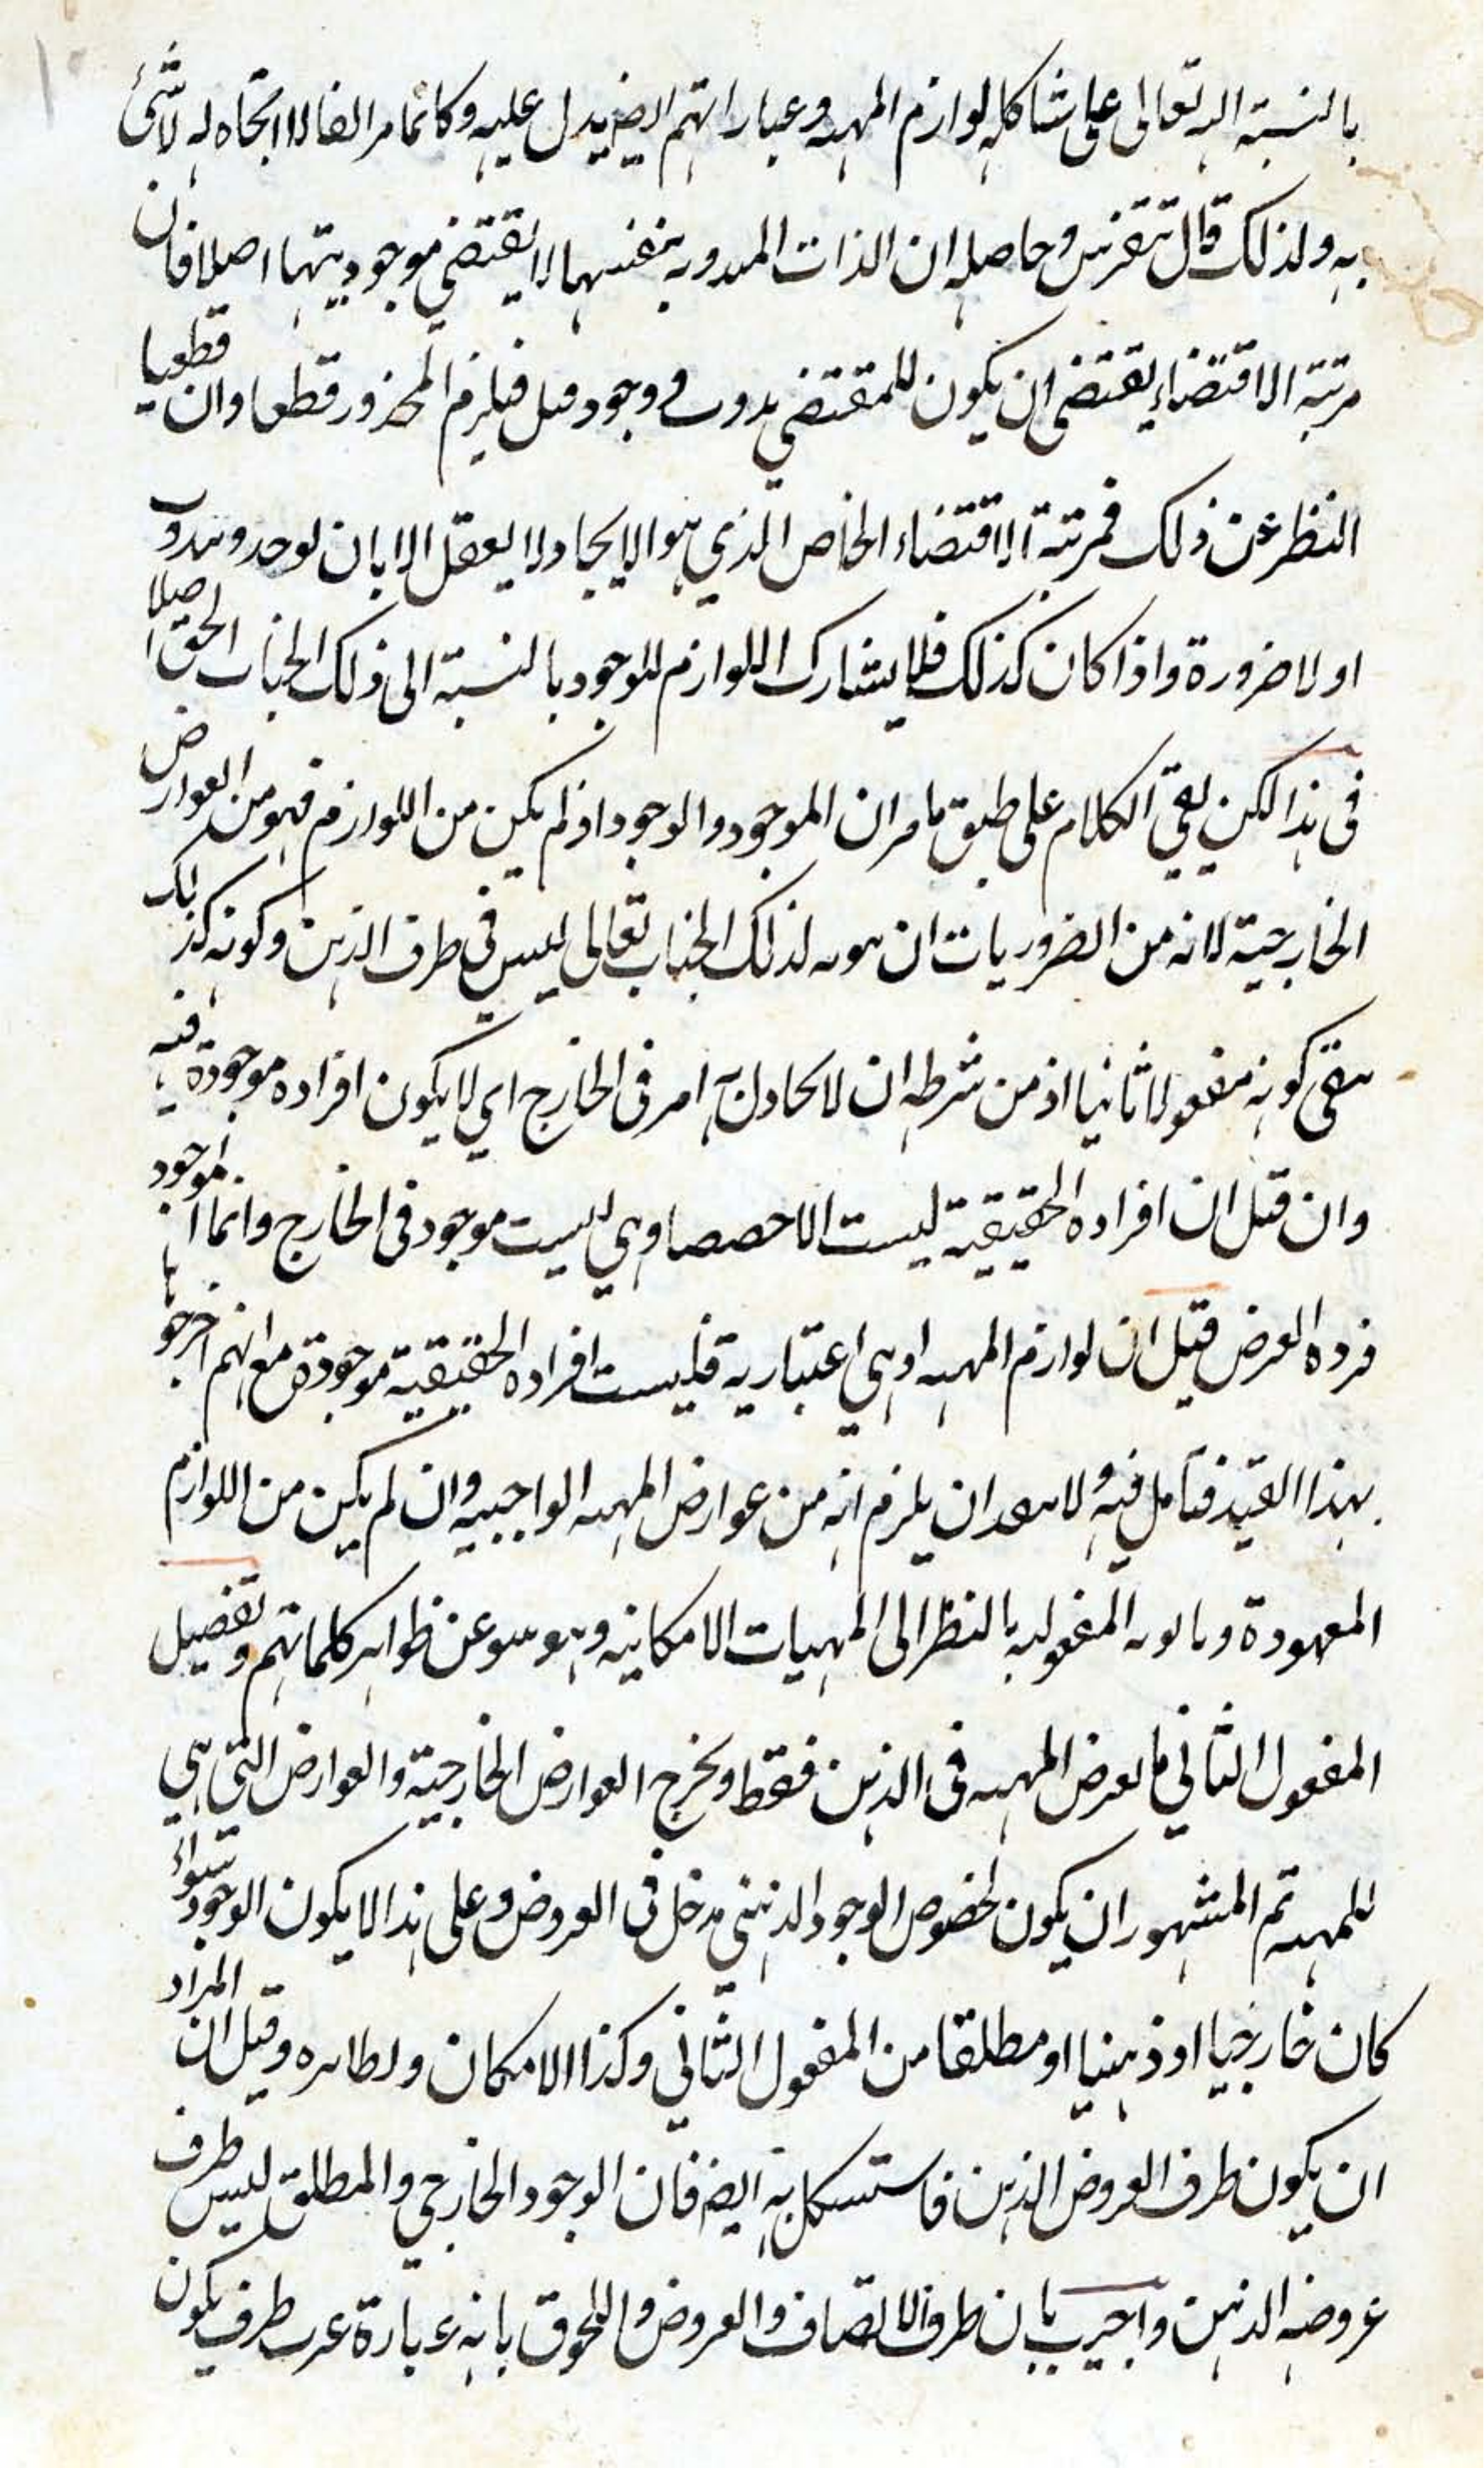 بالنسبة اليه تعالى على شاكلة لوازم المهية وعباراتهم ايضا يدل عليه وكانما مر انفا لا اتجاه له لاشئ
به ولذلك قال تتفرس وحاصله ان الذات المبدوية بنفسها لا يقتضي موجوديتها اصلا فان
مرتبة الاقتضاء يقتضى ان يكون للمقتضي بدون وجود قبل فيلزم المحزور قطعا وان قطعيا
النظر عن ذلك فمرتبة الاقتضاء الخاص الذي هو الايجاد لا يعقل الا بان يوجد وبدون
اولا ضرورة واذا كان كذلك فلا يشارك اللوازم للوجود بالنسبة الى ذلك الجناب الحق اصلا
فى هذا لكن بقي الكلام على طبق ما مر ان الموجود والوجود اذ لم يكن من اللوازم فهو من العوارض
الخارجية لانه من الضروريات ان لذلك الجناب تعالى ليس فى ظرف الذهن وكونه كذلك
ينفى كونه معقولا ثانيا اذ من شرطه ان لا يحاذى به امر فى الخارج اي لا يكون افراده موجودة فيه
وان قيل ان افراده الحقيقية ليست الا حصصا وهي ليست موجود فى الخارج وانما الموجود
فرده العرض قيل ان لوازم المهية اذ هي اعتبارية فليست افراده الحقيقية موجودة مع انهم اخرجوها
بهذا القيد فتامل فيه ولا يبعد ان يلزم انه من عوارض المهية الواجبيه وان لم يكن من اللوازم
المعهودة المعقوليه بالنظر الى المهيات الامكانيه وهو عن ظواهر كلماتهم وتفصيل
المعقول الثاني ما يعرض المهية فى الذهن فقط ويخرج العوارض الخارجية والعوارض التي هي
للمهية ثم المشهور ان يكون لخصوص الوجود الذهني مدخل فى العروض وعلى هذا لا يكون الوجود سواء
كان خارجيا او ذهنيا او مطلقا من المعقول الثاني وكذا الامكان ونظايره وقيل ان المراد
ان يكون ظرف العروض الذهن فاستشكل به ايضا فان الوجود الخارجي والمطلق ليس ظرف
عروضه الذهن واجيب بان ظرف الاتصاف والعروض واللحوق بانه عبارة عن ظرف يكون